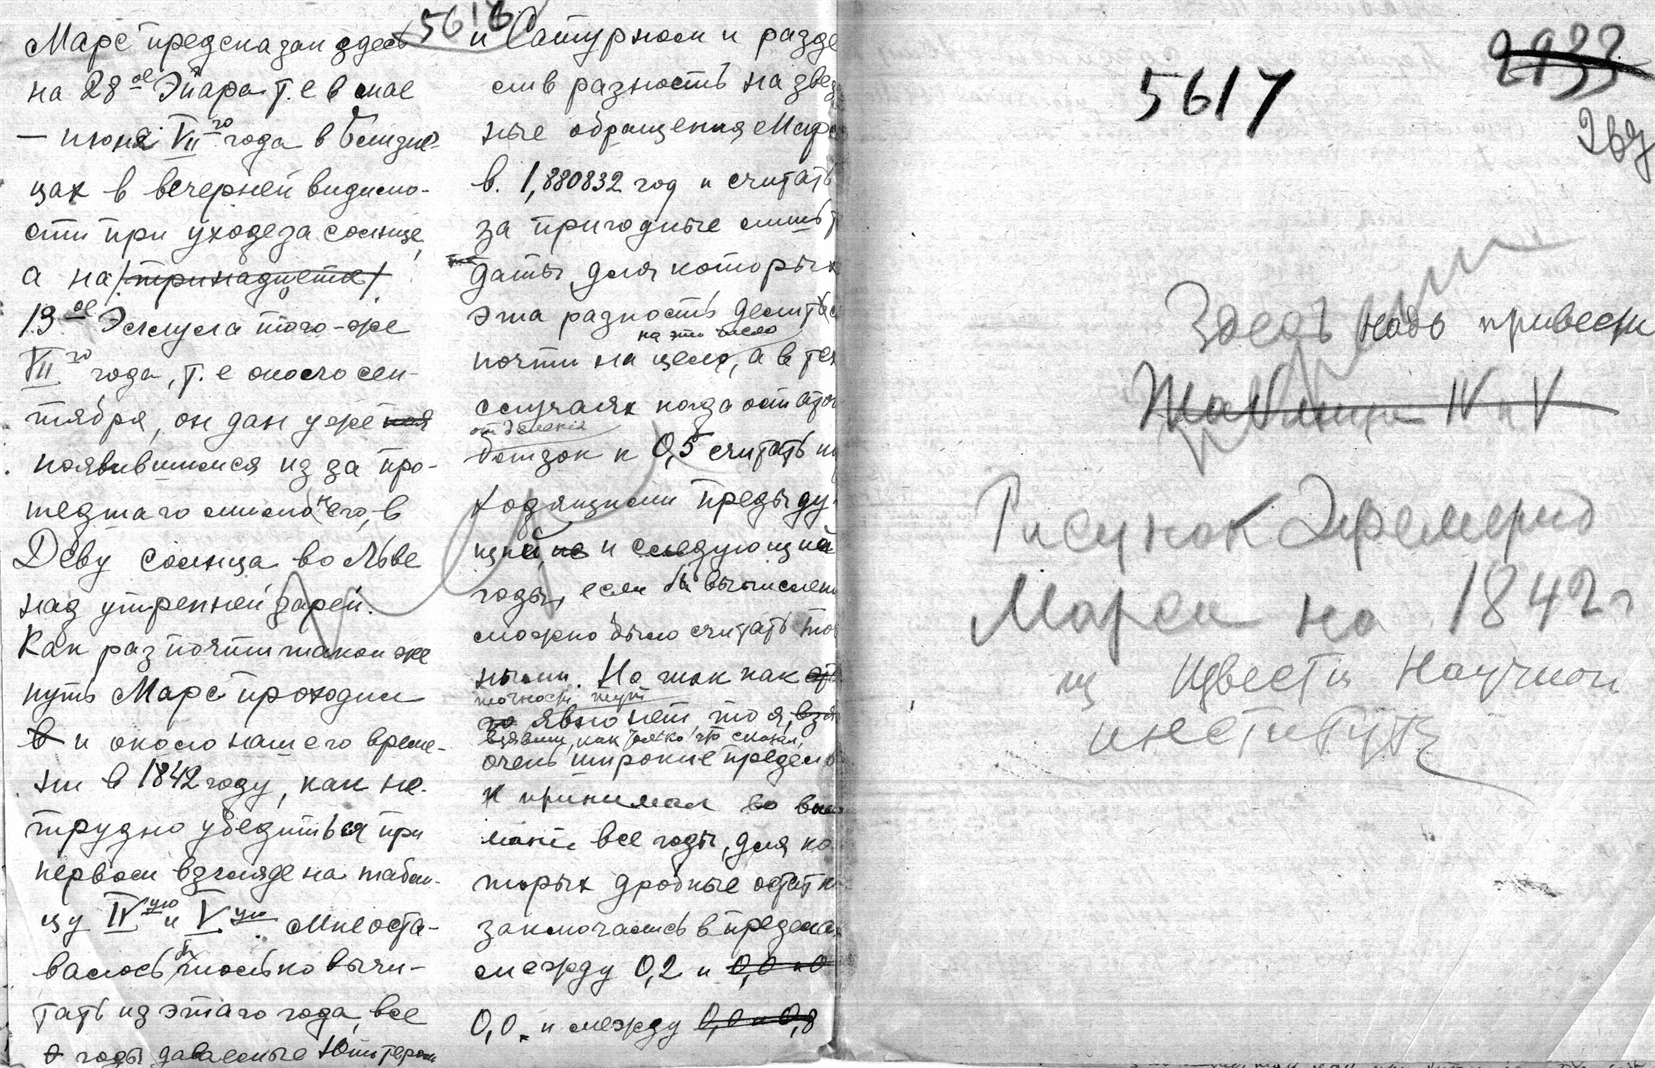 5616
Марс предсказан здесь
на 28ое Эйара т. е в мае
— июня VIIго года в близне-
цах в вечерней видимо-
сти при уходе за солнце,
а на (тринадцете)
13ое Эллула того-же
VIIго года, т. е около сен-
тября, он дан уже
появившимся из за про-
шедшаго мимо него, в
Деву солнца во Льве
над утренней зарей.
Как раз почти такой же
путь Марс проходил
в и около нашего време-
ни в 1842 году, как не-
трудно убедиться при
первом взгляде на табли-
цу IVую и Vую. Мне оста-
валось бы только вычи-
тать из этаго года, все
годы даваемые Юпитером
и Сатурном и разде
лив разность на звез
ные обращения Марс
в. 1,880832 год и считать
за пригодные лишь т
даты, для которых
эта разность делится
на это число
почти на цело, а в тех
случаях когда остаток
от деления
близок к 0,5 считать
ходящими предыду
щий и следующий
годы, если бы вычислени
можно было считать то
ными. Но так как
точности тут
явно нет, то я,
взявши, как только что сказал,
очень широкие пределы
и принимал во вни
мание все годы, для ко
торых дробные остатки
заключались в предела
между 0,2 и 0,0
0,0. и между 0,8
5617
2933
Здесь надо привести
Таблицы IV и V
Рисунок Эфемерид
Марса на 1842 г
из Известий Научного
института